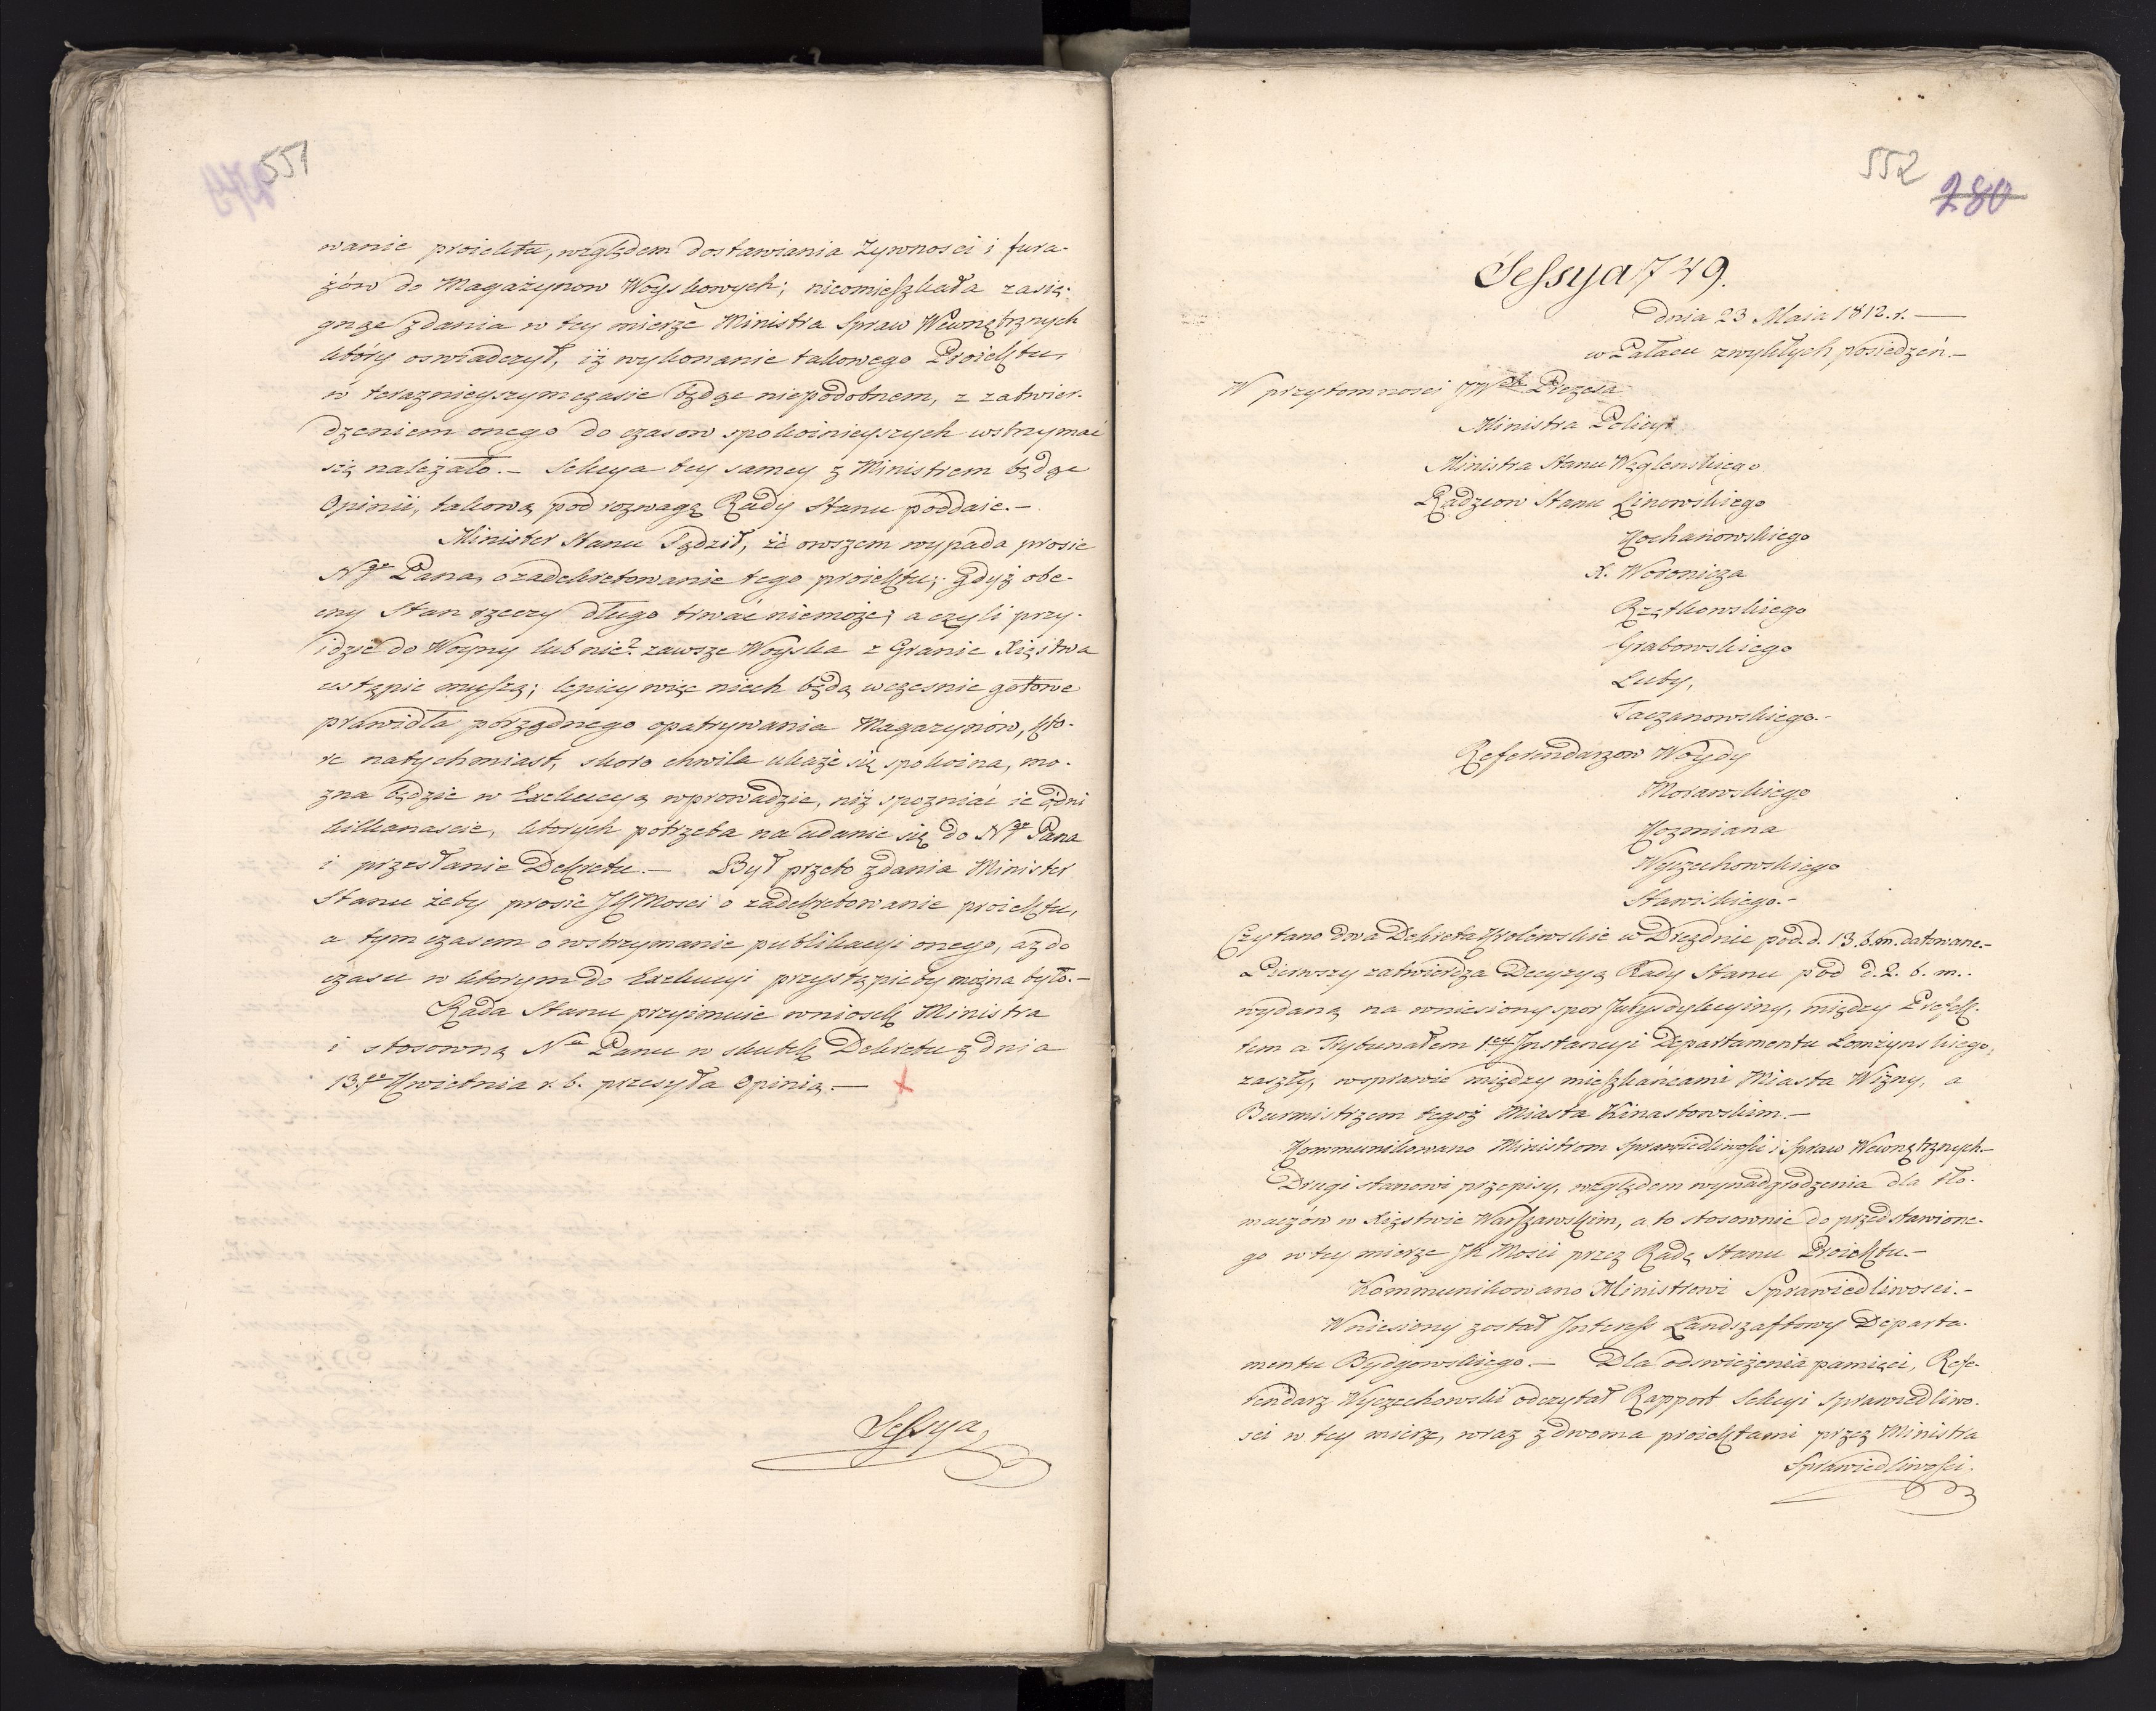 551
wanie proiektu, względem dostawiania Zywnosci i fura-
żów do Magażynow Woyskowych; nieomieszkała zasią-
gnąć zdania w tey mierze Ministra Spraw Wewnętrznych
który oswiadczył, iż wykonanie takowego Proiektu,
w teraznieyszym czasie będąc niepodobnem, z zatwier-
dzeniem onego do czasow spokoinieyszych wstrzymać
się należało. — Sekcya tey samey z Ministrem będąc
Opinii, takową pod rozwagę Rady Stanu poddaie. —
Minister Stanu Sądził, że owszem wypada prosic
Ngo Pana, o zadekretowanie tego proiektu; Gdyż obe-
cny Stan rzeczy długo trwać niemoże; a czyli przy-
idzie do Woyny lub nie? zawsze Woyska z Granic Xięstwa
ustąpic muszą; lepiey więc niech będą wczesnie gotowe
prawidła porządnego opatrywania Magazynów, któ-
re natychmiast, skoro chwila ukaże się spokoina, mo-
zna będzie w Exekucyą wprowadzic, niż spozniać ie o dni
kilkanascie, ktorych potrzeba na udanie się do Ngo Pana
i przesłanie Dekretu. — Był przeto zdania Minister
Stanu żeby prosic JKMosci o zadekretowanie proiektu,
a tym czasem o wstrzymanie publikacyi onego, aż do
czasu w ktorym do Exekucyi przystąpic by można było. —
Rada Stanu przyimuie wniosek Ministra
i stosowną Nu Panu w skutek Dekretu z dnia
13go Kwietnia r. b. przesyła Opinią. —
Sessya
552
280
Sessya 749.
dnia 23 Maia 1812. r. —
w Pałacu zwykłych posiedzeń —
W przytomnosci JWch Prezesa
Ministra Policyi
Ministra Stanu Węglenskiego
Radzcow Stanu Linowskiego
Kochanowskiego
X. Woronicza
Rzętkowskiego
Grabowskiego
Luby,
Taczanowskiego. -
Referendarzow Woydy
Morawskiego
Kozmiana
Wyczechowskiego
Stawiskiego. -
Czytano dwa Dekreta Krolewskie w Dreznie pod. d. 13. b. m. datowane. -
Pierwszy zatwierdza Decyzyą Rady Stanu pod d. 2. b. m.
wydaną na wniesiony spor Jurysdykcyiny, między Prefek-
tem a Trybunałem 1ey Jnstancyi Departamentu Łomżynskiego,
zaszły, w sprawie między mieszkańcami Miasta Wizny, a
Burmistrzem tegoż Miasta Kinastowskim. —
Kommunikowano Ministrom Sprawiedliwości i Spraw Wewnętrznych —
Drugi stanowi przepisy, względem wynadgrodzenia dla tło-
maczów w Xięstwie Warszawskim, a to stosownie do przedstawione-
go w tey mierze JK Mosci przez Radę Stanu Proiektu. —
Kommunikowano Ministrowi Sprawiedliwosci. -
Wniesiony został Jnteress Landszaftowy Departa-
mentu Bydgowskiego. — Dla odswieżenia pamięci, Refe-
rendarz Wyczechowski odczytał Rapport Sekcyi Sprawiedliwo-
sci w tey mierze, wraz z dwoma proiektami przez Ministra
Sprawiedliwości